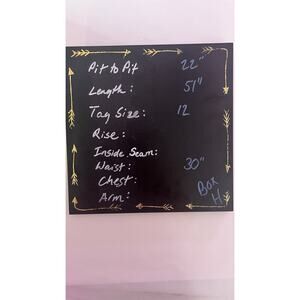 Pit to Pit 22"
Length: 51"
Tag Size: 12
Rise:
Inside Seam:
Waist: 30"
Chest:
Arm:
Box
H